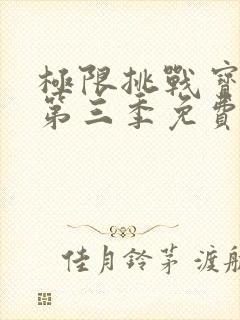 極限挑戰寶
第三季免費
佳月鈴茅 渡航